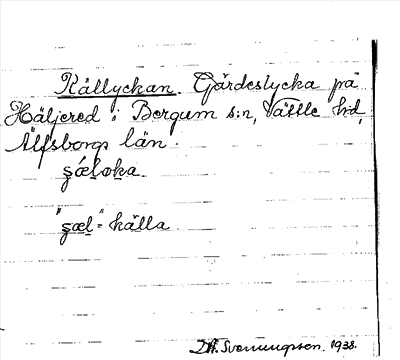 Källyckan. Gärdeslycka på
Häljered i Bergum s:n, Vättle hd,
Älfsborgs län.
ʂǽl̥øka.
"ʂæl̥" = källa
D.A. Svenungsson. 1938.